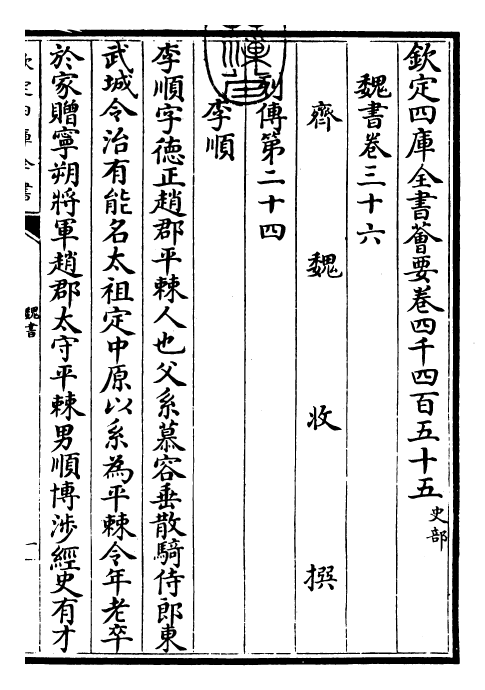 欽定四庫全書薈要卷四千四百五十五 史部
魏書卷三十六
齊 魏 收 撰
列傳第二十四
李順
李順字德正趙郡平棘人也父系慕容垂散騎侍郎東
武城令治有能名太祖定中原以系為平棘令年老卒
於家贈寧朔將軍趙郡太守平棘男順博涉經史有才
欽定四庫全書
魏書
一